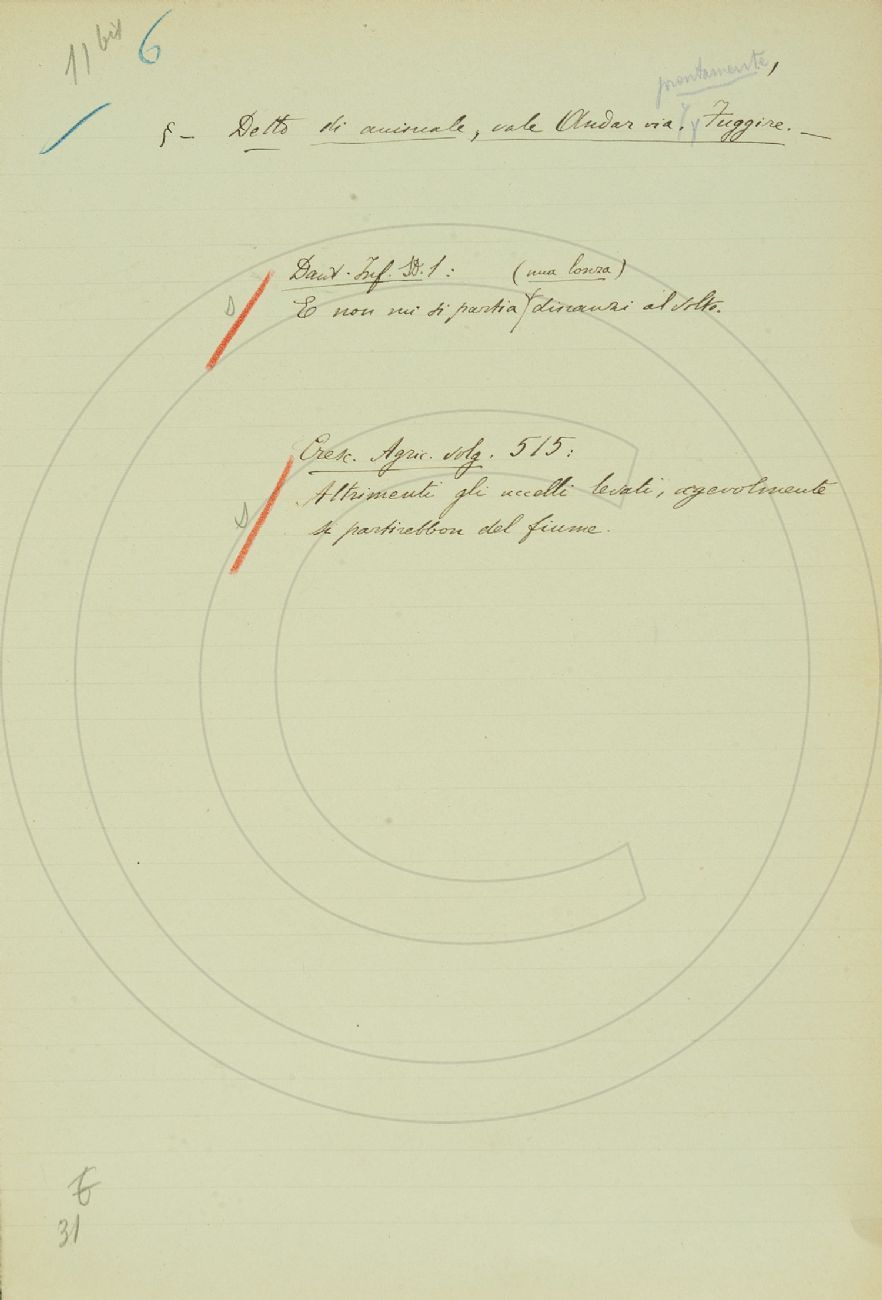 11 bis 6
prontamente,
§ - Detto di animale, vale Andar via. Fuggire. -
Dant. Inf. 1: (una lonza)
E non mi si partia dinanzi al volto.
Cresc. Agric. volg. 515:
Altrimenti gli uccelli levati, agevolmente
si partirebbon del fiume.
31